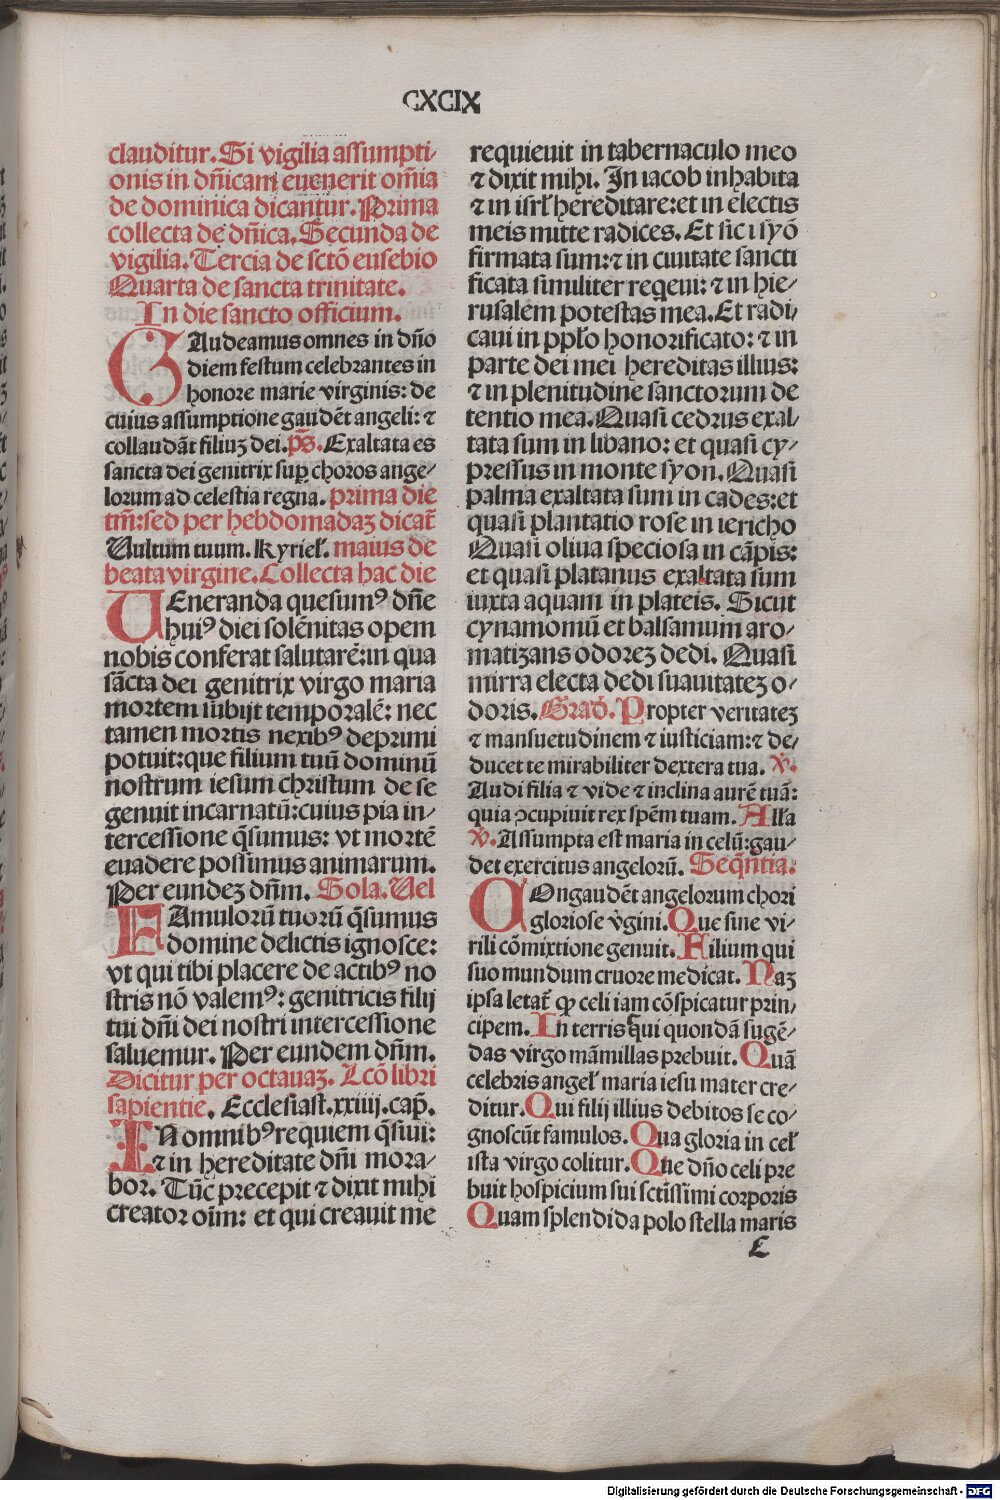 CXCIX
clauditur. Si vigilia assumpti-
onis in dñicam euenerit om̃ia
de dominica dicantur. Prima
collecta de dñica. Secunda de
vigilia. Tercia de sctõ eusebio
Quarta de sancta trinitate.
In die sancto officium.
GAudeamus omnes in dño
diem festum celebrantes in
honore marie virginis: de
cuius assumptione gaudẽt angeli: ⁊
collaudãt filiuꝫ dei. p̃s. Exaltata es
sancta dei genitrix suꝑ choros ange-
lorum ad celestia regna. prima die
tm̃: sed per hebdomadaꝫ dicat̃
Uultum tuum. Kyrieł. maius de
beata virgine. Collecta hac die
UEneranda quesumꝰ dñe
huiꝰ diei solẽnitas opem
nobis conferat salutarẽ: in qua
sãcta dei genitrix virgo maria
mortem subijt temporalẽ: nec
tamen mortis nexibꝰ deprimi
potuit: que filium tuũ dominũ
nostrum iesum christum de se
genuit incarnatũ: cuius pia in-
tercessione q̃sumus: vt mortẽ
euadere possimus animarum.
Per eundeꝫ dñm. Sola. Uel
FAmulorũ tuorũ q̃sumus
domine delictis ignosce:
vt qui tibi placere de actibꝰ no
stris nõ valemꝰ: genitricis filij
tui dñi dei nostri intercessione
saluemur. Per eundem dñm.
Dicitur per octauaꝫ. Lcõ libri
sapientie. Ecclesiast. xxiiij. cap̃.
IN omnibꝰ requiem q̃siui:
⁊ in hereditate dñi mora-
bor. Tũc precepit ⁊ dixit mihi
creator oim̃: et qui creauit me
requieuit in tabernaculo meo
⁊ dixit mihi. In iacob inhabita
⁊ in isrł hereditare: et in electis
meis mitte radices. Et sic i syõ
firmata sum: ⁊ in ciuitate sancti
ficata similiter requeui: ⁊ in hie-
rusalem potestas mea. Et radi-
caui in ppło honorificato: ⁊ in
parte dei mei hereditas illius:
⁊ in plenitudine sanctorum de
tentio mea. Quasi cedrus exal-
tata sum in libano: et quasi cy-
pressus in monte syon. Quasi
palma exaltata sum in cades: et
quasi plantatio rose in iericho
Quasi oliua speciosa in cãpis:
et quasi platanus exaltata sum
iuxta aquam in plateis. Sicut
cynamomũ et balsamum aro-
matizans odoreꝫ dedi. Quasi
mirra electa dedi suauitateꝫ o-
doris. Grad̃. Propter veritateꝫ
⁊ mansuetudinem ⁊ iusticiam: ⁊ de-
ducet te mirabiliter dextera tua. v̾.
Audi filia ⁊ vide ⁊ inclina aurẽ tuã:
quia ↄcupiuit rex spẽm tuam. Alła
v̾. Assumpta est maria in celũ: gau-
det exercitus angelorũ. Seq̃ntia.
COngaudẽt angelorum chori
gloriose v̾gini. Que sine vi-
rili cõmixtione genuit. Filium qui
suo mundum cruore medicat. Naꝫ
ipsa letat̃ ꝙ celi iam cõspicatur prin-
cipem. In terris cui quondã sugẽ-
das virgo mãmillas prebuit. Quã
celebris angeł maria iesu mater cre-
ditur. Qui filij illius debitos se co-
gnoscũt famulos. Qua gloria in ceł
ista virgo colitur. Que dño celi pre
buit hospicium sui sctĩssimi corporis
Quam splendida polo stella maris
E
Digitalisierung gefördert durch die Deutsche Forschungsgemeinschaft - DFG